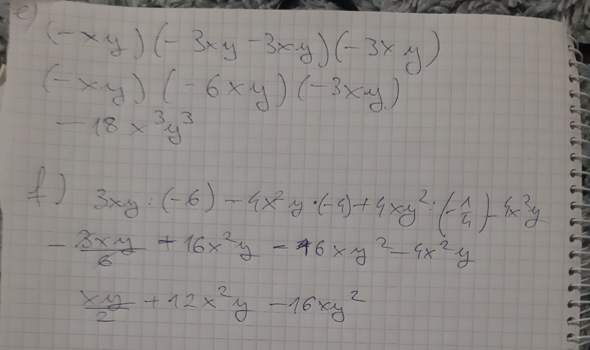 e)
(-xy)(-3xy-3xy)(-3xy)
(-xy)(-6xy)(-3xy)
-18x³y³
f) 3xy:(-6)-4x²y·(-4)+4xy²:(-1/4)-4x²y
-3xy/6+16x²y-16xy²-4x²y
xy/2+12x²y-16xy²